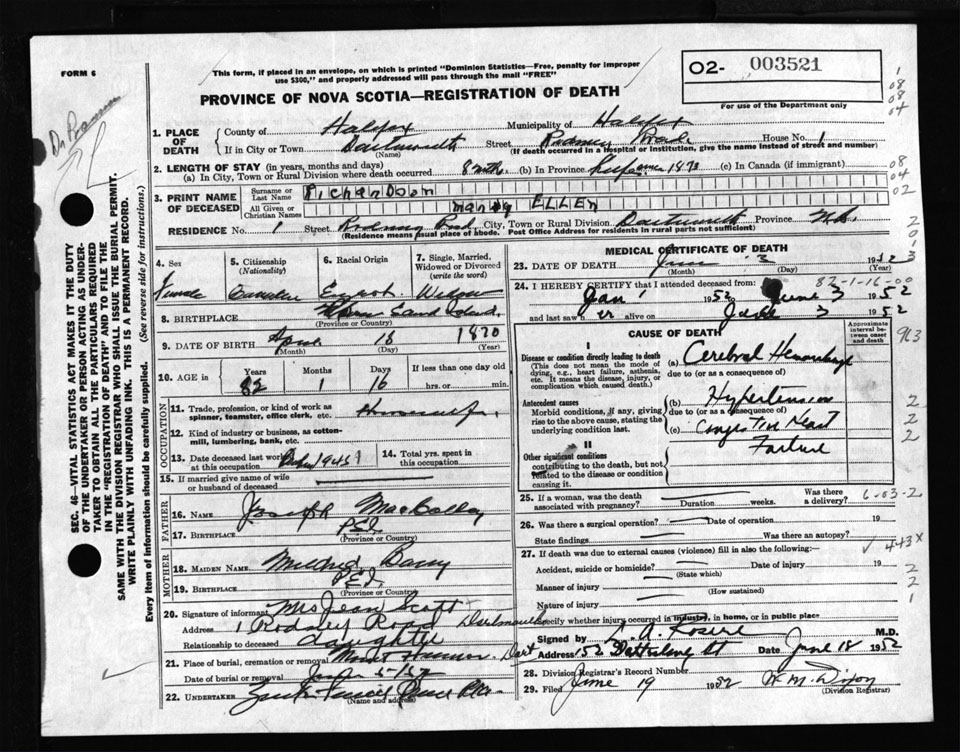 FORM 6
This form, if placed in an envelope, on which is printed "Dominion Statistics—Free, penalty for improper
use $300," and properly addressed will pass through the mail "FREE"
02- 003521
For use of the Department only
PROVINCE OF NOVA SCOTIA—REGISTRATION OF DEATH
SEC. 46—VITAL STATISTICS ACT MAKES IT THE DUTY
OF THE UNDERTAKER OR PERSON ACTING AS UNDER-
TAKER TO OBTAIN ALL THE PARTICULARS REQUIRED
IN THE "REGISTRATION OF DEATH" AND TO FILE THE
SAME WITH THE DIVISION REGISTRAR WHO SHALL ISSUE THE BURIAL PERMIT.
WRITE PLAINLY WITH UNFADING INK. THIS IS A PERMANENT RECORD.
Every item of information should be carefully supplied. (See reverse side for instructions.)
1. PLACE OF DEATH
County of Halifax Municipality of Halifax
If in City or Town Dartmouth Street Rodney Road House No. 1
(Name) (If death occurred in a Hospital or Institution, give the name instead of street and number)
2. LENGTH OF STAY (in years, months and days)
(a) In City, Town or Rural Division where death occurred 8 mths (b) In Province 1873 (c) In Canada (if immigrant)
3. PRINT NAME OF DECEASED
Surname or Last Name
All Given or Christian Names ELLEN
RESIDENCE No. 1 Street Rodney Road City, Town or Rural Division Dartmouth Province N.S.
(Residence means usual place of abode. Post Office Address for residents in rural parts not sufficient)
4. Sex
Female
5. Citizenship (Nationality)
Canadian
6. Racial Origin
7. Single, Married, Widowed or Divorced (write the word)
8. BIRTHPLACE
(Province or Country)
9. DATE OF BIRTH April 18 1870
(Month) (Day) (Year)
10. AGE in Years Months Days If less than one day old
82 1 16 hrs. or min.
OCCUPATION
11. Trade, profession, or kind of work as spinner, teamster, office clerk, etc.
12. Kind of industry or business, as cotton-mill, lumbering, bank, etc.
13. Date deceased last worked at this occupation
14. Total yrs. spent in this occupation
15. If married give name of wife or husband of deceased
FATHER
16. NAME Joseph
17. BIRTHPLACE P.E.I.
(Province or Country)
MOTHER
18. MAIDEN NAME Mildred Barry
19. BIRTHPLACE P.E.I.
(Province or Country)
20. Signature of informant Mrs Jean Scott
Address 1 Rodney Road Dartmouth
Relationship to deceased daughter
21. Place of burial, cremation or removal Mount Dart
Date of burial or removal June 5/52
22. UNDERTAKER
(Name and address)
MEDICAL CERTIFICATE OF DEATH
23. DATE OF DEATH June 3 1952
(Month) (Day) (Year)
24. I HEREBY CERTIFY that I attended deceased from: 82-1-16-00
Jan 1 1952 to June 3 1952
and last saw her alive on June 3 1952
CAUSE OF DEATH
Approximate interval between onset and death
I
Disease or condition directly leading to death
(This does not mean the mode of dying, e.g., heart failure, asthenia, etc. It means the disease, injury, or complication which caused death.)
(a) Cerebral Hemorrhage
due to (or as a consequence of)
Antecedent causes
Morbid conditions, if any, giving rise to the above cause, stating the underlying condition last.
(b) Hypertension
due to (or as a consequence of)
(c) Congestive Heart
Failure
II
Other significant conditions
contributing to the death, but not related to the disease or condition causing it.
25. If a woman, was the death associated with pregnancy? Duration weeks. Was there a delivery?
6-03-2
26. Was there a surgical operation? Date of operation 19
State findings Was there an autopsy?
443X
27. If death was due to external causes (violence) fill in also the following:—
Accident, suicide or homicide? Date of injury 19
(State which)
Manner of injury
(How sustained)
Nature of injury
Specify whether injury occurred in industry, in home, or in public place
Signed by M.D.
Address 152 St Date June 18 1952
28. Division Registrar's Record Number
29. Filed June 19 1952
(Division Registrar)